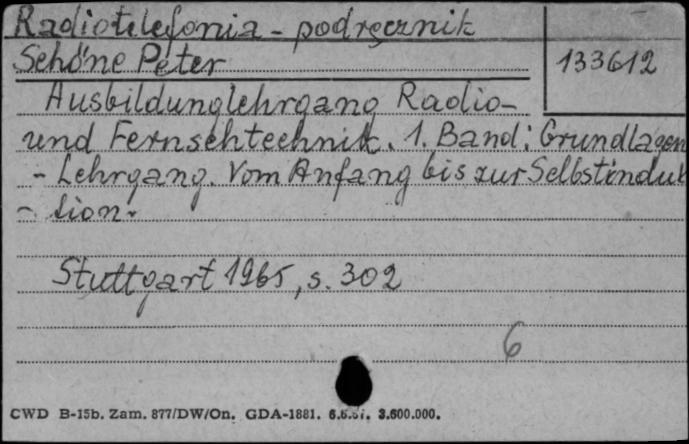 Radiotelefonia - podręcznik
Schöne Peter
133612
Ausbildunglehrgang Radio-
und Fernsehtechnik. 1. Band: Grundlagen
- Lehrgang. Vom Anfang bis zur Selbstinduk
- tion.
Stuttgart 1965, s. 302
6
CWD B-15b. Zam. 877/DW/On. GDA-1881. 3.600.000.